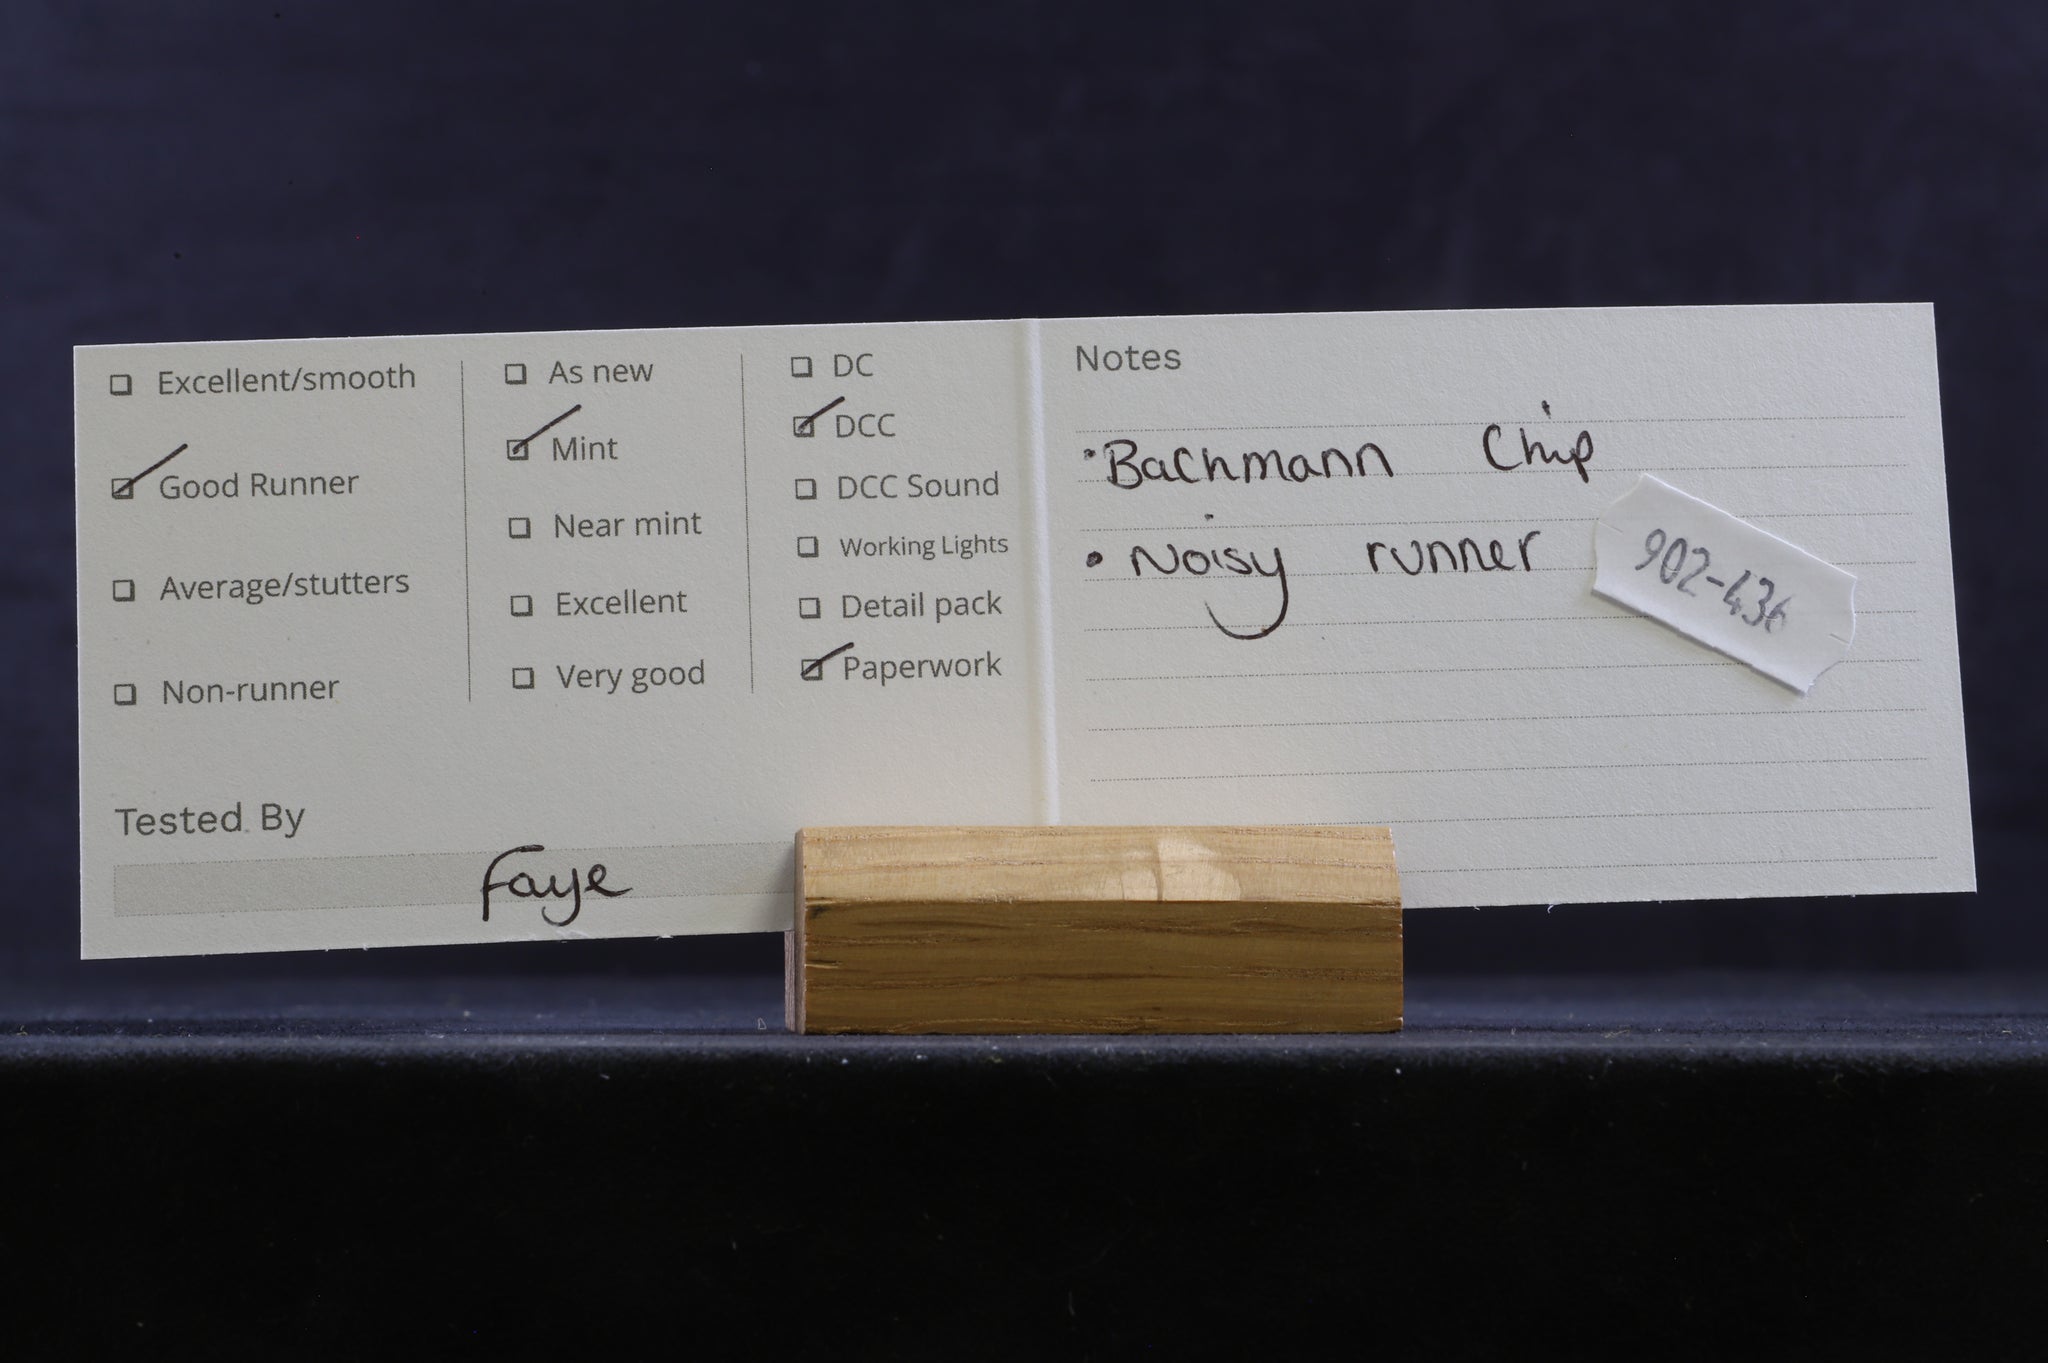 ☐ Excellent/smooth
☑ Good Runner
☐ Average/stutters
☐ Non-runner
☐ As new
☑ Mint
☐ Near mint
☐ Excellent
☐ Very good
☐ DC
☑ DCC
☐ DCC Sound
☐ Working Lights
☐ Detail pack
☑ Paperwork
Tested By
Faye
Notes
• Bachmann Chip
• Noisy runner
902-436